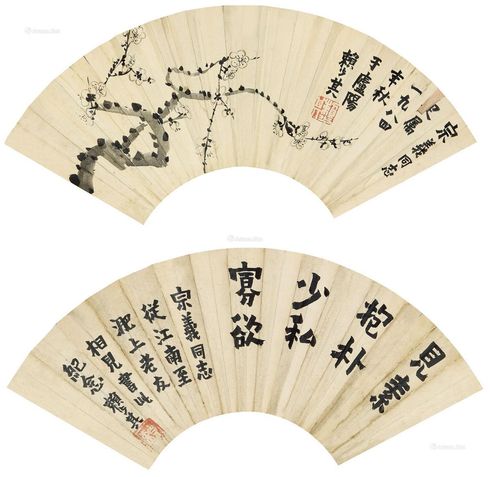 宗義同志
屬
一九八四
年秋
于廬陽
賴少其
見素
抱朴
少私
寡欲
宗義同志
從江南至
淝上老友
相見書此
紀念賴少其